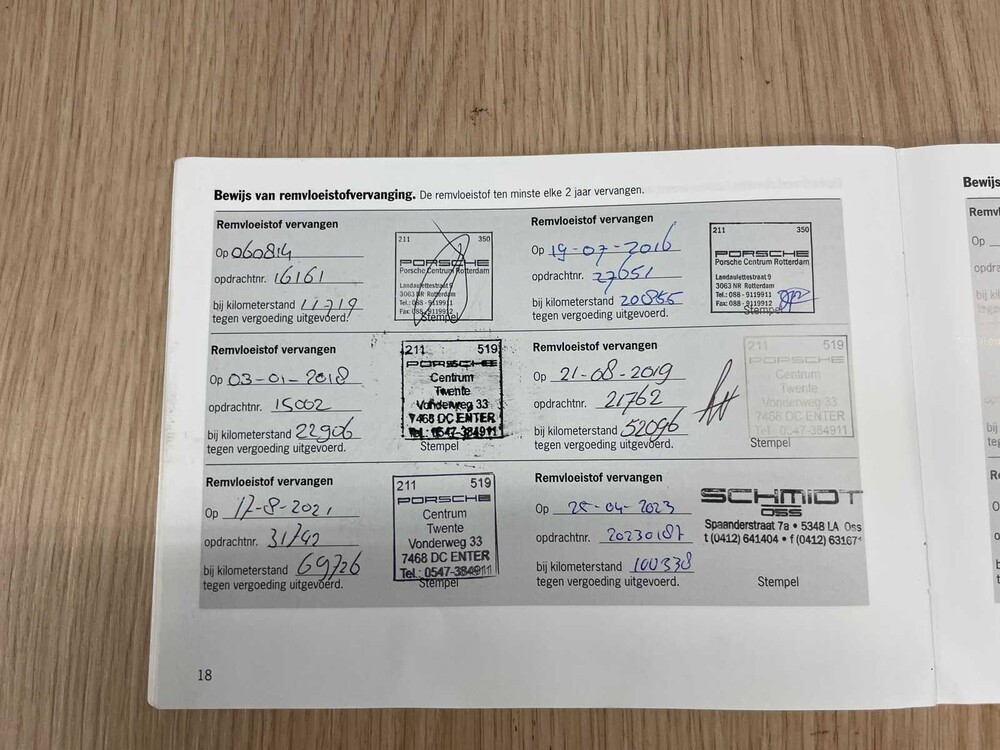 Bewijs van remvloeistofvervanging. De remvloeistof ten minste elke 2 jaar vervangen.
Remvloeistof vervangen
Op 060814
opdrachtnr. 16161
bij kilometerstand 11719
tegen vergoeding uitgevoerd.
211 350
PORSCHE
Porsche Centrum Rotterdam
Landaulettestraat 9
3063 NR Rotterdam
Tel.: 088 - 9119911
Fax: 088 - 9119912
Stempel
Remvloeistof vervangen
Op 19-07-2016
opdrachtnr. 27651
bij kilometerstand 20855
tegen vergoeding uitgevoerd.
211 350
PORSCHE
Porsche Centrum Rotterdam
Landaulettestraat 9
3063 NR Rotterdam
Tel.: 088 - 9119911
Fax: 088 - 9119912
Stempel
Remvloeistof vervangen
Op 03-01-2018
opdrachtnr. 15002
bij kilometerstand 22906
tegen vergoeding uitgevoerd.
211 519
PORSCHE
Centrum
Twente
Vonderweg 33
7468 DC ENTER
Tel.: 0547-384911
Stempel
Remvloeistof vervangen
Op 21-08-2019
opdrachtnr. 21762
bij kilometerstand 52096
tegen vergoeding uitgevoerd.
211 519
PORSCHE
Centrum
Twente
Vonderweg 33
7468 DC ENTER
Tel.: 0547-384911
Stempel
Remvloeistof vervangen
Op 17-8-2021
opdrachtnr. 31742
bij kilometerstand 69726
tegen vergoeding uitgevoerd.
211 519
PORSCHE
Centrum
Twente
Vonderweg 33
7468 DC ENTER
Tel.: 0547-384911
Stempel
Remvloeistof vervangen
Op 25-04-2023
opdrachtnr. 20230187
bij kilometerstand 100338
tegen vergoeding uitgevoerd.
SCHMIDT
OSS
Spaanderstraat 7a • 5348 LA Oss
t (0412) 641404 • f (0412) 63167
Stempel
18
Bewijs
Op